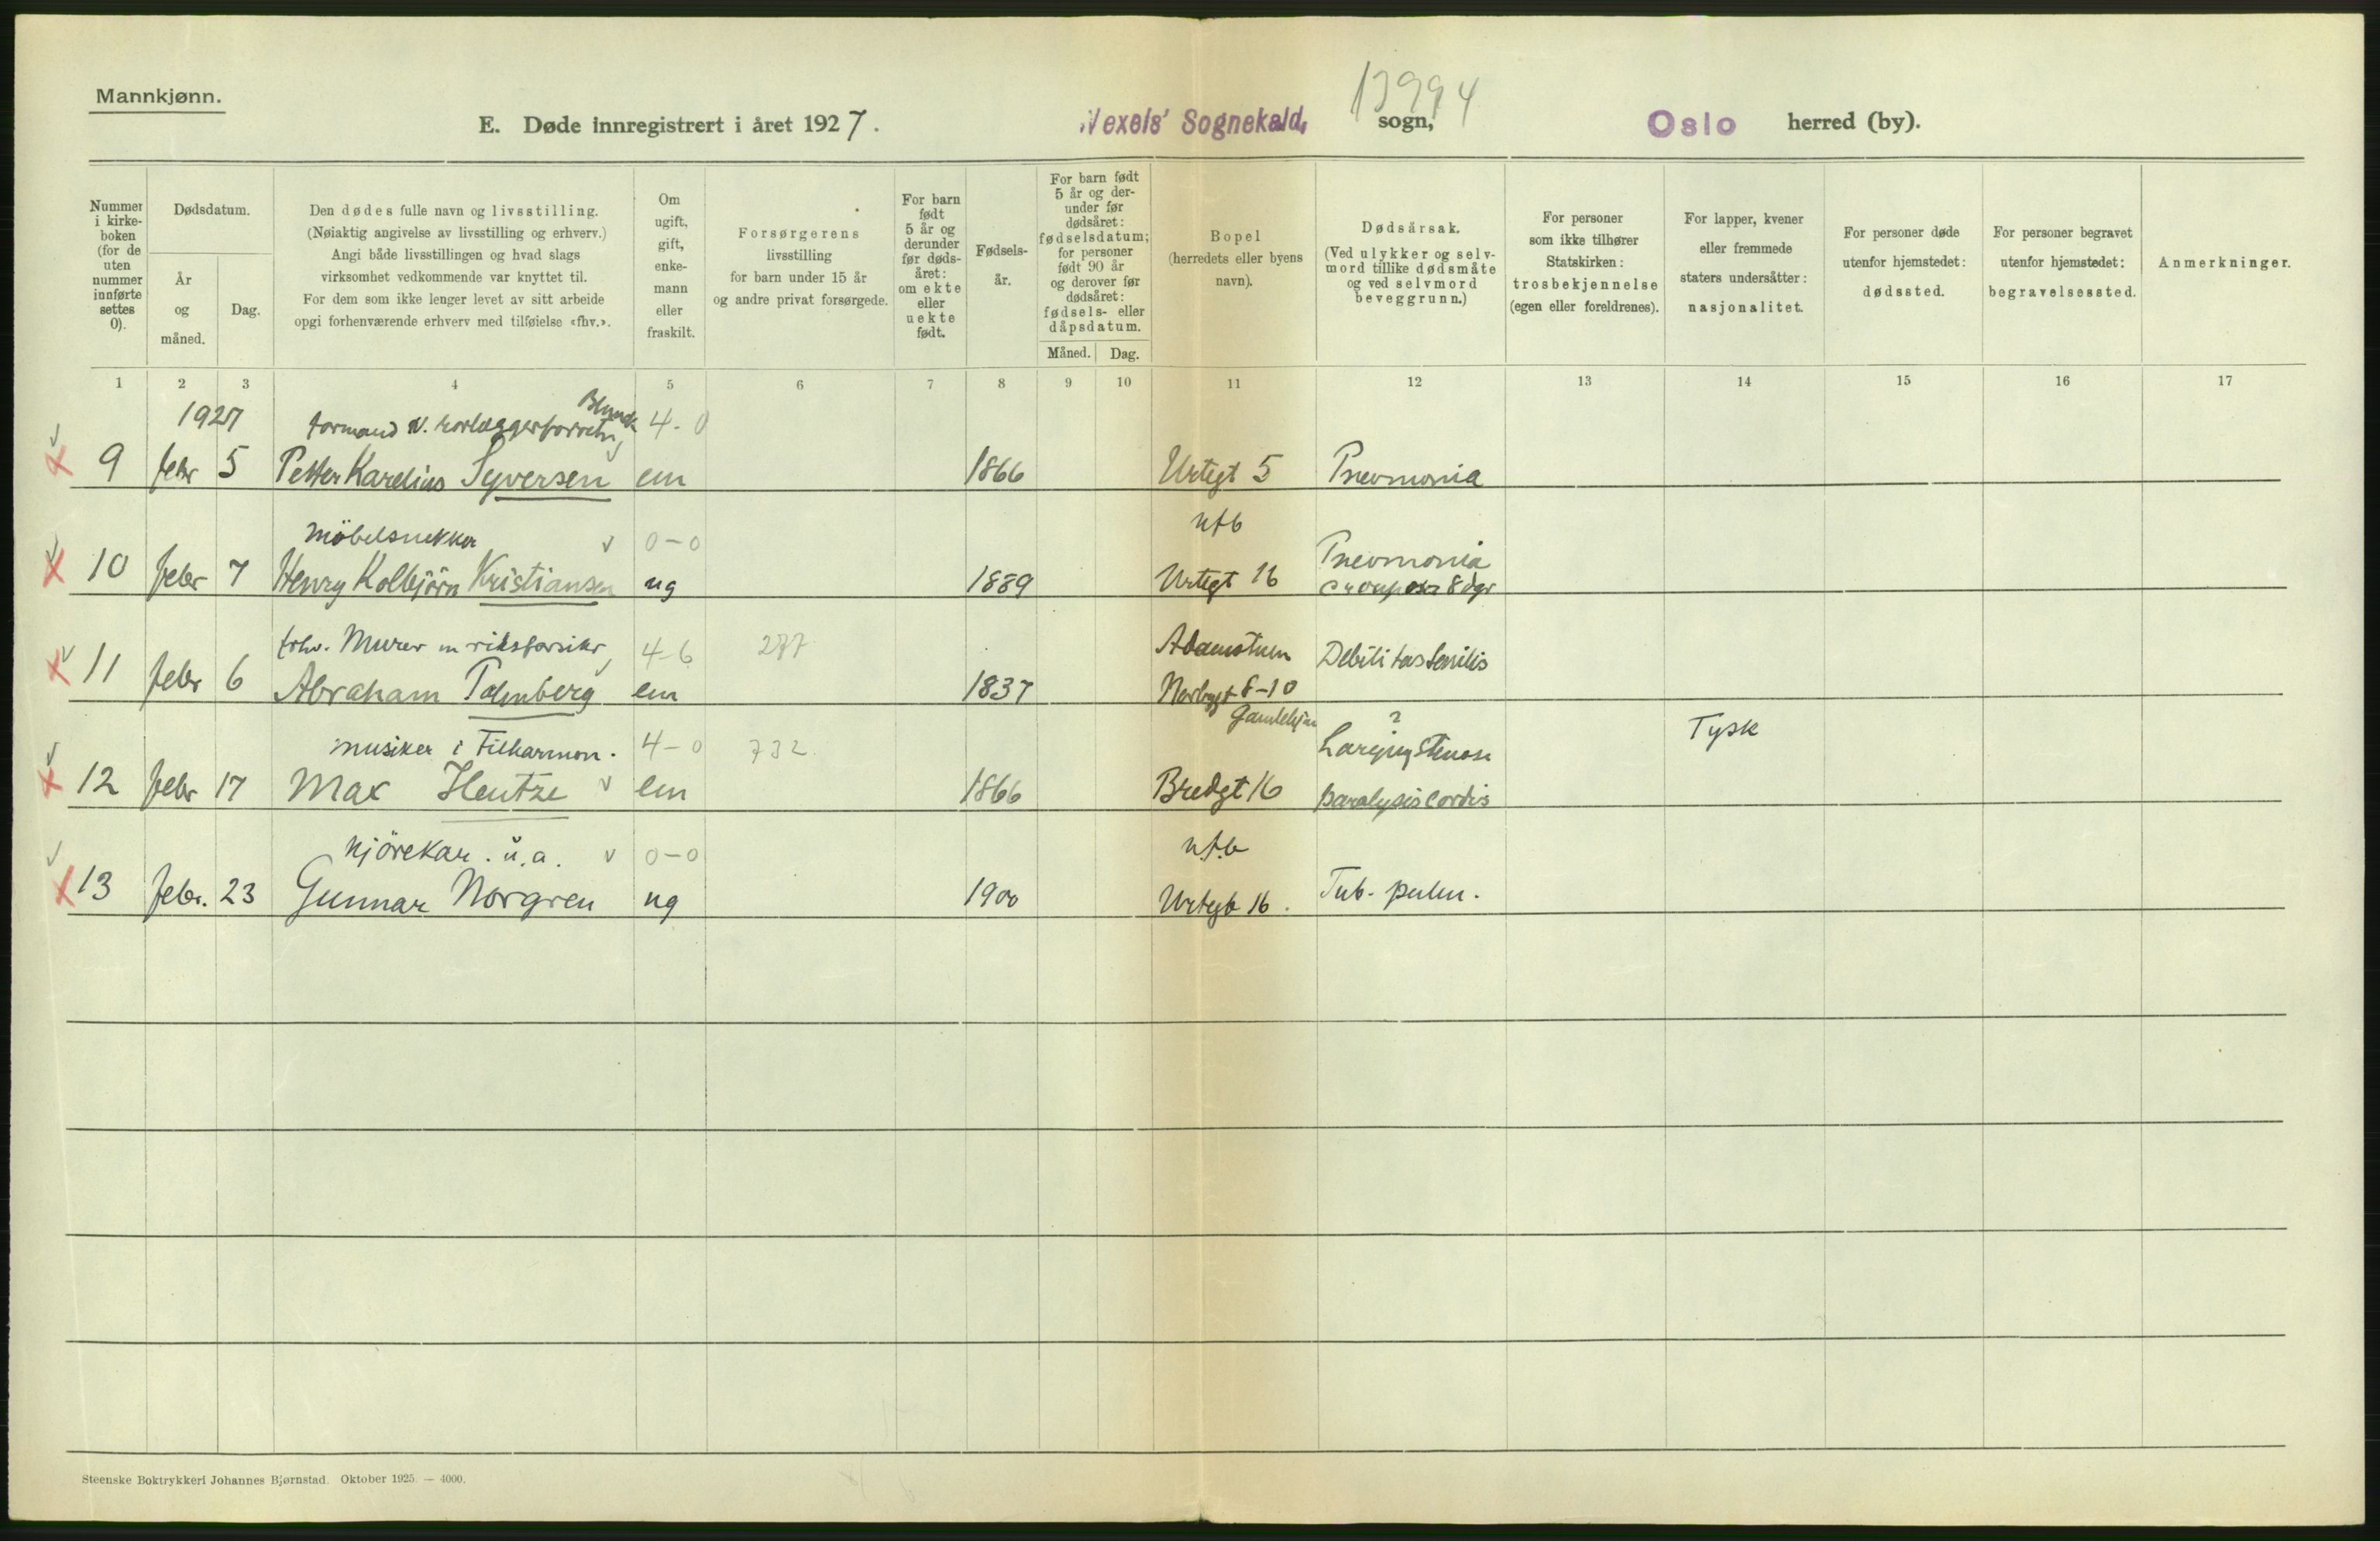 Mannkjønn.
E. Døde innregistrert i året 1927.
Wexels' Sognekald, sogn,
13994
Oslo herred (by).
Nummer i kirkeboken (for de uten nummer innførte settes 0).
Dødsdatum.
År og måned.
Dag.
Den dødes fulle navn og livsstilling.
(Nøiaktig angivelse av livsstilling og erhverv.)
Angi både livsstillingen og hvad slags
virksomhet vedkommende var knyttet til.
For dem som ikke lenger levet av sitt arbeide
opgi forhenværende erhverv med tilføielse «fhv.».
Om ugift, gift, enkemann eller fraskilt.
Forsørgerens
livsstilling
for barn under 15 år
og andre privat forsørgede.
For barn født 5 år og derunder før dødsåret: om ekte eller uekte født.
Fødselsår.
For barn født 5 år og derunder før dødsåret: fødselsdatum; for personer født 90 år og derover før dødsåret: fødsels- eller dåpsdatum.
Måned. Dag.
Bopel
(herredets eller byens
navn).
Dødsårsak.
(Ved ulykker og selvmord tillike dødsmåte og ved selvmord beveggrunn.)
For personer
som ikke tilhører
Statskirken:
trosbekjennelse
(egen eller foreldrenes).
For lapper, kvener
eller fremmede
staters undersåtter:
nasjonalitet.
For personer døde
utenfor hjemstedet:
dødssted.
For personer begravet
utenfor hjemstedet:
begravelsessted.
Anmerkninger.
1 2 3 4 5 6 7 8 9 10 11 12 13 14 15 16 17
1927 formand v. 4-0
9 febr 5 Petter Karelius Syversen em 1866 Urtegt 5 Pneumonia
möbelsnekker v 0-0 utb Pneumonia
10 febr 7 Henry Kolbjörn Kristiansen ug 1889 Urtegt 16 crouposa 8 dgr
fhv. Murer m riksforsikr 4-6 277 Debilitas senilis
11 febr 6 Abraham Palmberg em 1837 8-10
Gamlehjem
musiker i Filharmon. 4-0 732 ? Tysk
12 febr 17 Max Hentze v em 1866 Bredgt 16 paralysis cordis
kjörekar. u.a. v 0-0 utb
13 febr. 23 Gunnar Norgren ug 1900 Urtegt 16. Tub. pulm.
Steenske Boktrykkeri Johannes Bjørnstad. Oktober 1925. — 4000.